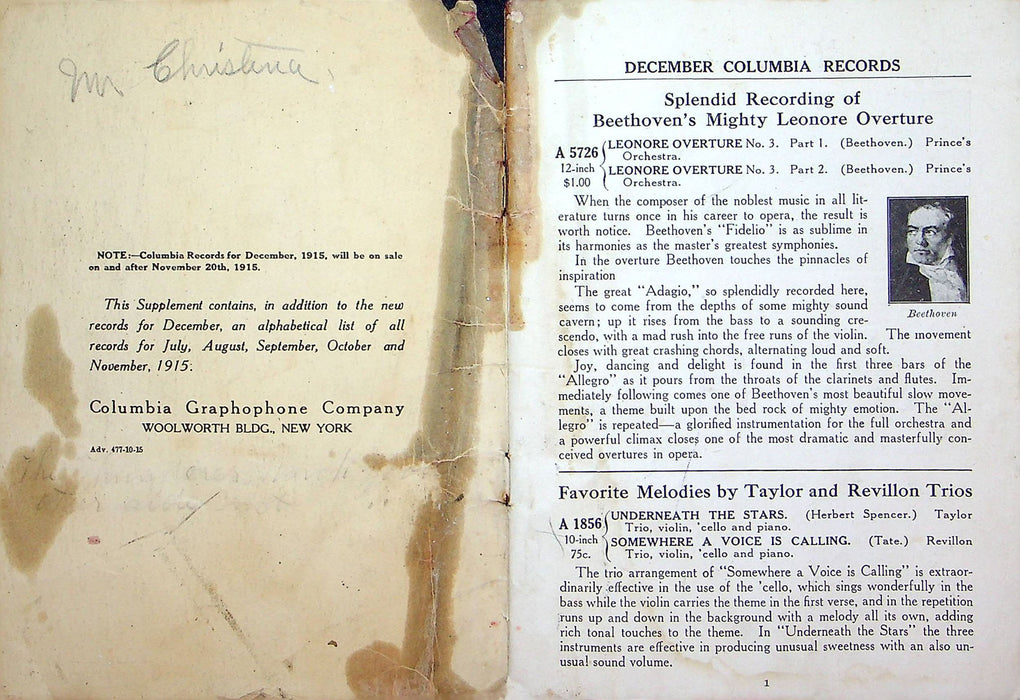 Christina.
NOTE:—Columbia Records for December, 1915, will be on sale
on and after November 20th, 1915.
This Supplement contains, in addition to the new
records for December, an alphabetical list of all
records for July, August, September, October and
November, 1915.
Columbia Graphophone Company
WOOLWORTH BLDG., NEW YORK
Adv. 477-10-15
DECEMBER COLUMBIA RECORDS
Splendid Recording of
Beethoven's Mighty Leonore Overture
A 5726
12-inch
$1.00
LEONORE OVERTURE No. 3. Part 1. (Beethoven.) Prince's
Orchestra.
LEONORE OVERTURE No. 3. Part 2. (Beethoven.) Prince's
Orchestra.
When the composer of the noblest music in all lit-
erature turns once in his career to opera, the result is
worth notice. Beethoven's "Fidelio" is as sublime in
its harmonies as the master's greatest symphonies.
In the overture Beethoven touches the pinnacles of
inspiration
The great "Adagio," so splendidly recorded here,
seems to come from the depths of some mighty sound
cavern; up it rises from the bass to a sounding cre-
scendo, with a mad rush into the free runs of the violin. The movement
closes with great crashing chords, alternating loud and soft.
Beethoven
Joy, dancing and delight is found in the first three bars of the
"Allegro" as it pours from the throats of the clarinets and flutes. Im-
mediately following comes one of Beethoven's most beautiful slow move-
ments, a theme built upon the bed rock of mighty emotion. The "Al-
legro" is repeated—a glorified instrumentation for the full orchestra and
a powerful climax closes one of the most dramatic and masterfully con-
ceived overtures in opera.
Favorite Melodies by Taylor and Revillon Trios
A 1856
10-inch
75c.
UNDERNEATH THE STARS. (Herbert Spencer.) Taylor
Trio, violin, 'cello and piano.
SOMEWHERE A VOICE IS CALLING. (Tate.) Revillon
Trio, violin, 'cello and piano.
The trio arrangement of "Somewhere a Voice is Calling" is extraor-
dinarily effective in the use of the 'cello, which sings wonderfully in the
bass while the violin carries the theme in the first verse, and in the repetition
runs up and down in the background with a melody all its own, adding
rich tonal touches to the theme. In "Underneath the Stars" the three
instruments are effective in producing unusual sweetness with an also un-
usual sound volume.
1